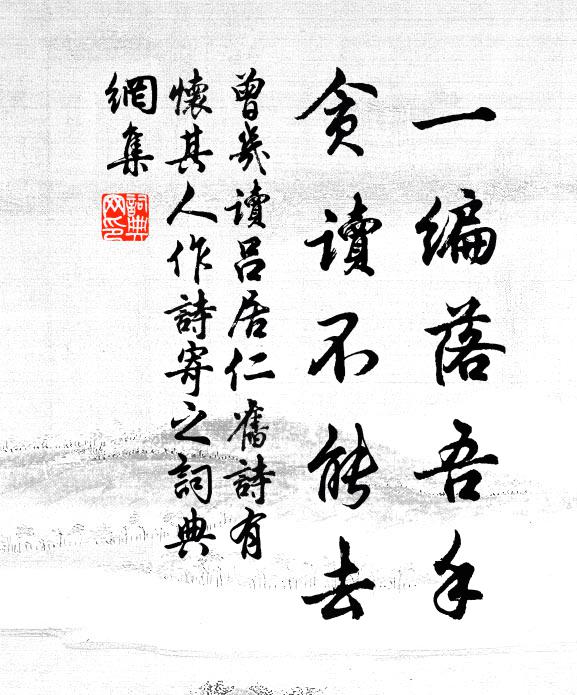 一編落吾手
貪讀不能去
曾幾讀呂居仁舊詩有
懷其人作詩寄之詞典
網集
詞典
网印